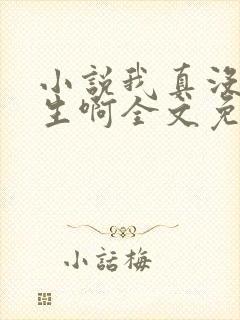 小説我真没
生啊全文免
小話梅